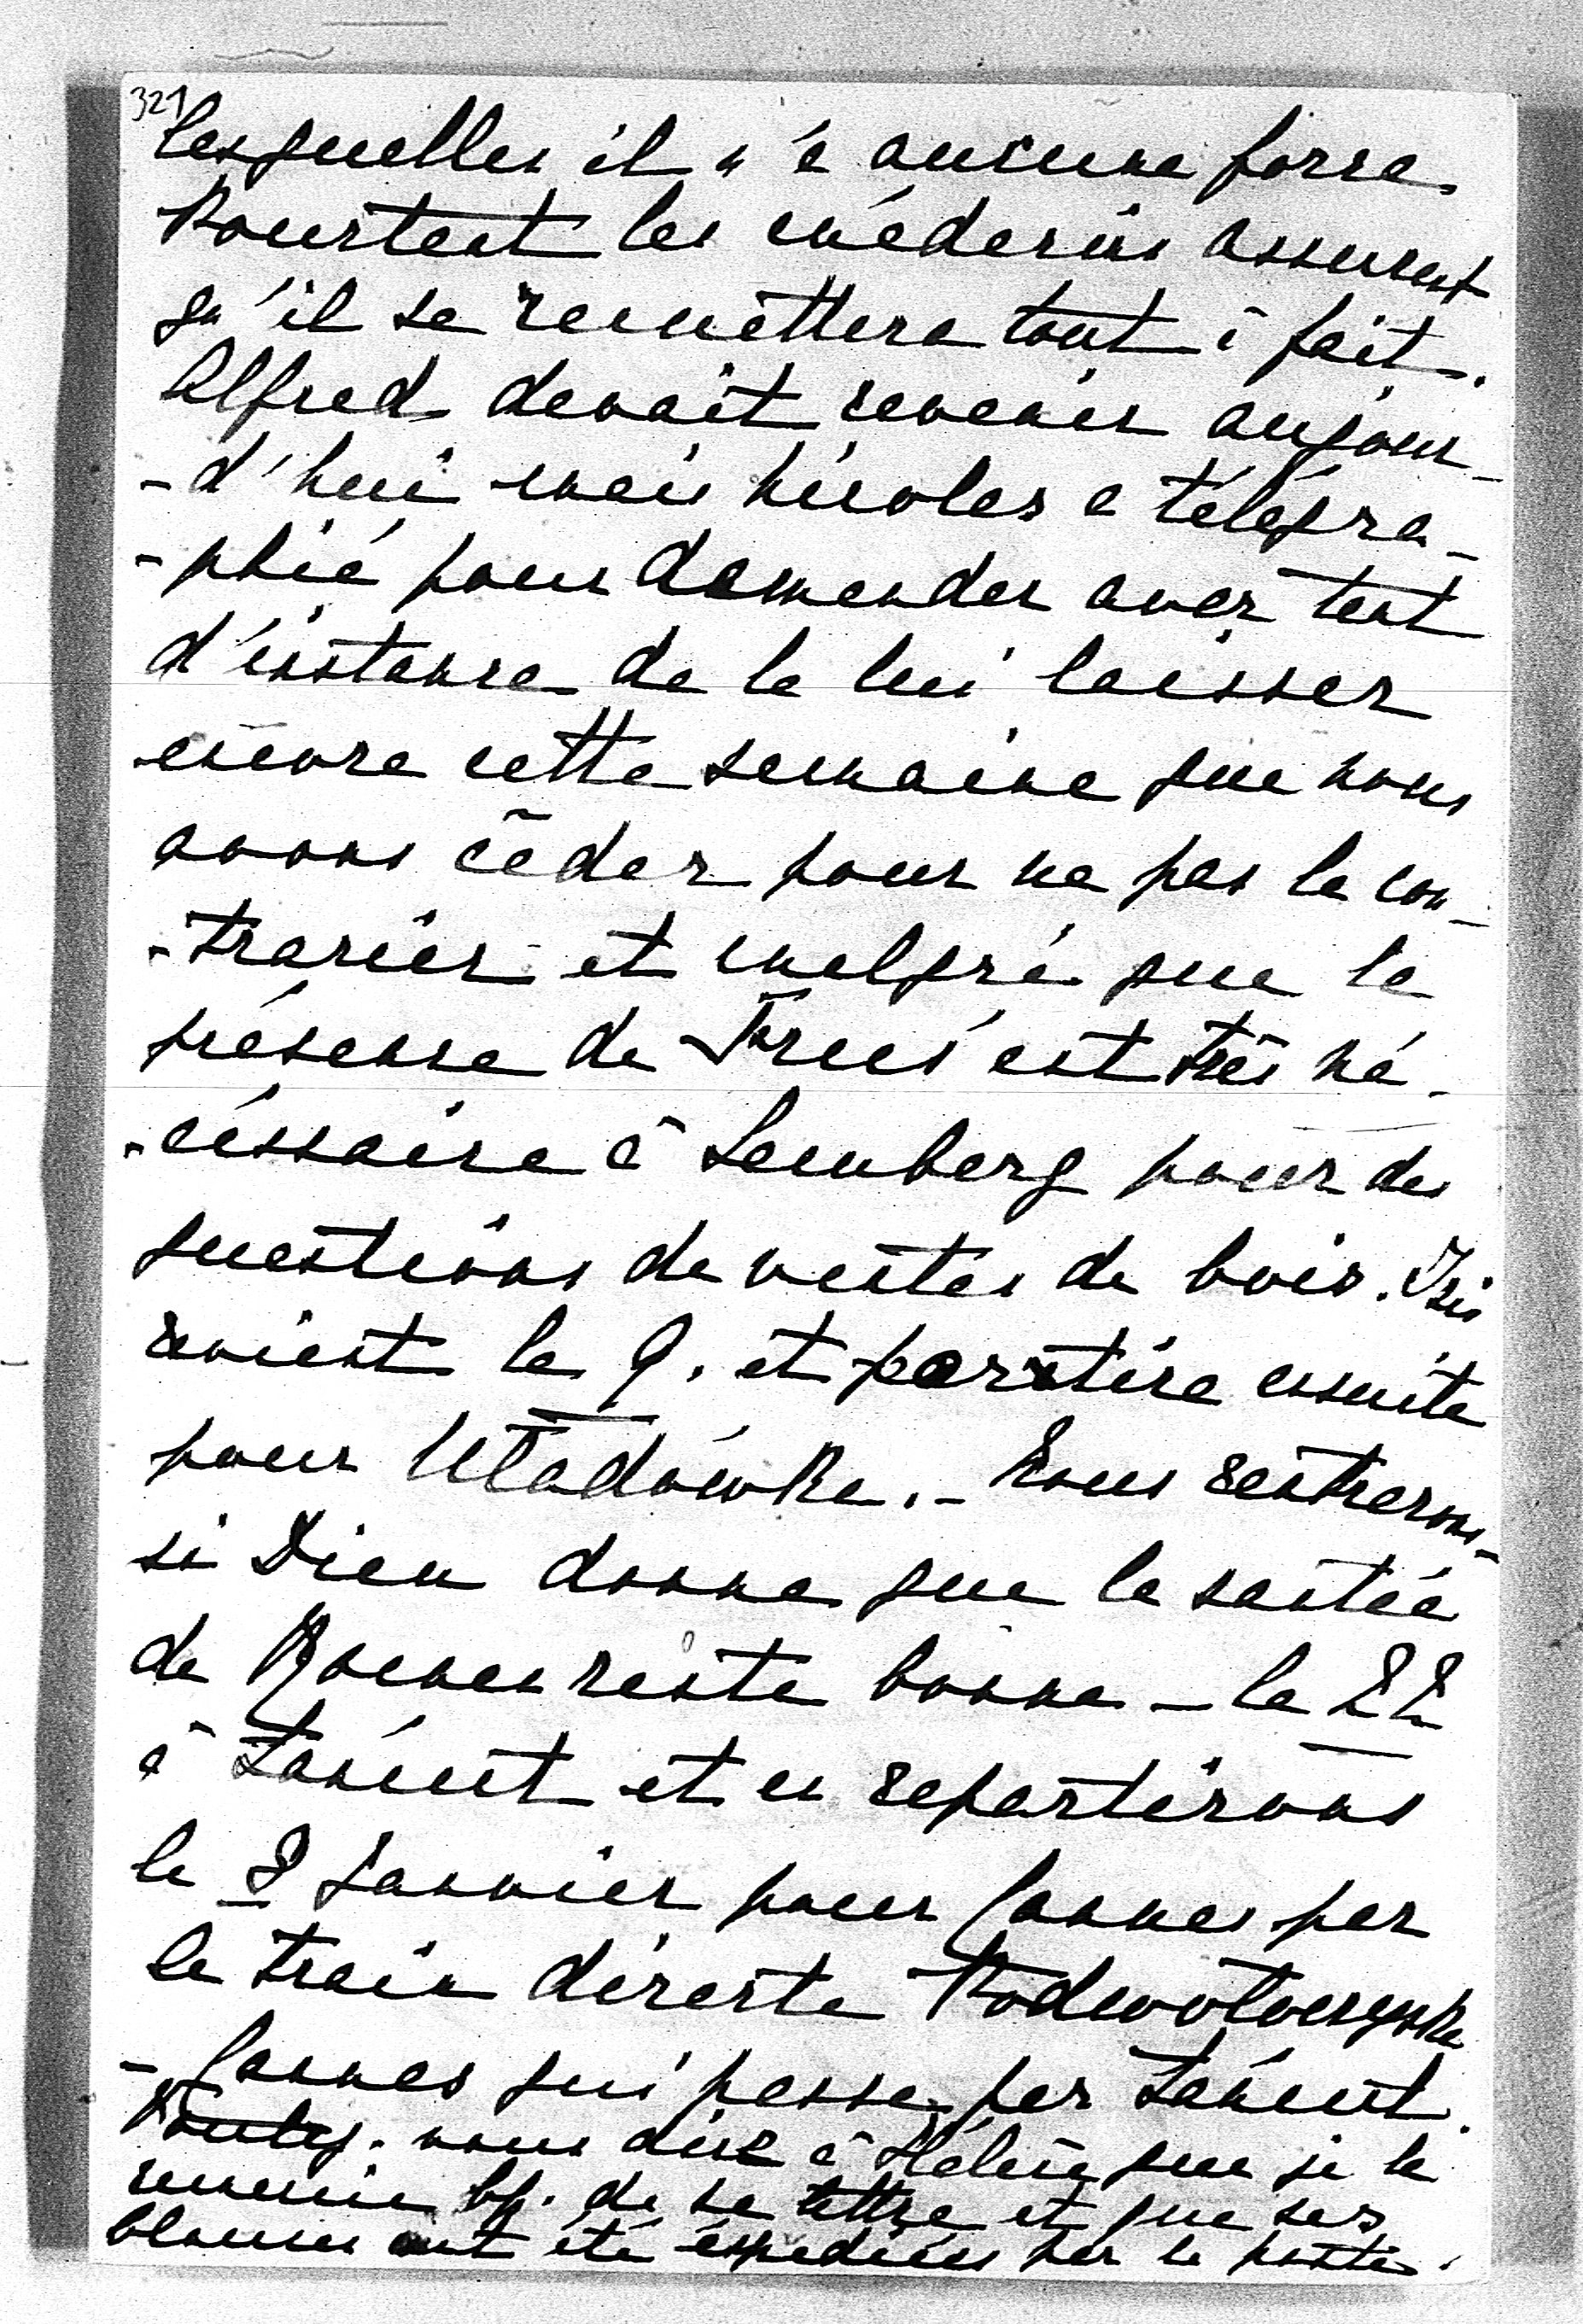 321
lesquelles il n'a aucune force.
Pourtant les médecins assurent
qu'il se remèttera tout à fait.
Alfred devait revenir aujour-
-d'hui mais Nicolas a télégra-
-phié pour demander avec tant
d'instance de le lui laisser
encore cette semaine que nous
avons cèder pour ne pas le con-
-trarier et malgré que la
présence de est très né-
-céssaire à Lemberg pour des
questions de ventes de bois.
revient le 9. et partira ensuite
pour Uładówka. - Nous rentrerons-
si Dieu donne que la santée
de Roman reste bonne - le 22
à Łańcut et en repartirons
le 8 Janvier pour Cannes par
le train directe Podwołoczyska
- Cannes qui passe par Łańcut.
vous dire à Hélène que je la
remercie bp. de sa lettre et que ses
blouses ont été éxpediées par la poste.